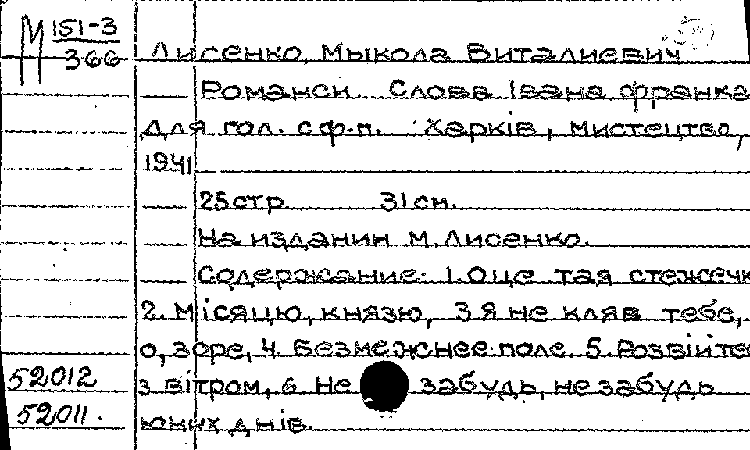 М 151-3
366
Лисенко, Мыкола Виталиевич
Романси. Слова Івана Франка
Для гол. с ф.-п. Харків, Мистецтво,
1941
25 стр. 31 см.
На издании М. Лисенко.
Содержание: 1. Оце тая стежечк
2. Місяцю, князю, 3 Я не кляв тебе,
о, зоре, 4. Безмежнее поле. 5. Розвійтес
з вітром, 6. Не забудь, не забудь
юних днів.
52012
52011.